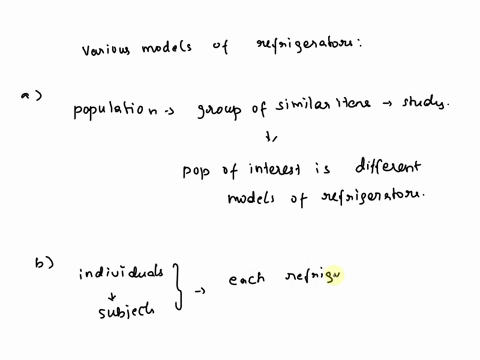 various models of refrigerators:
a) population → group of similar items → study.
↓
pop of interest is different
models of refrigerators.
b) individuals
↓
subjects } → each refrig